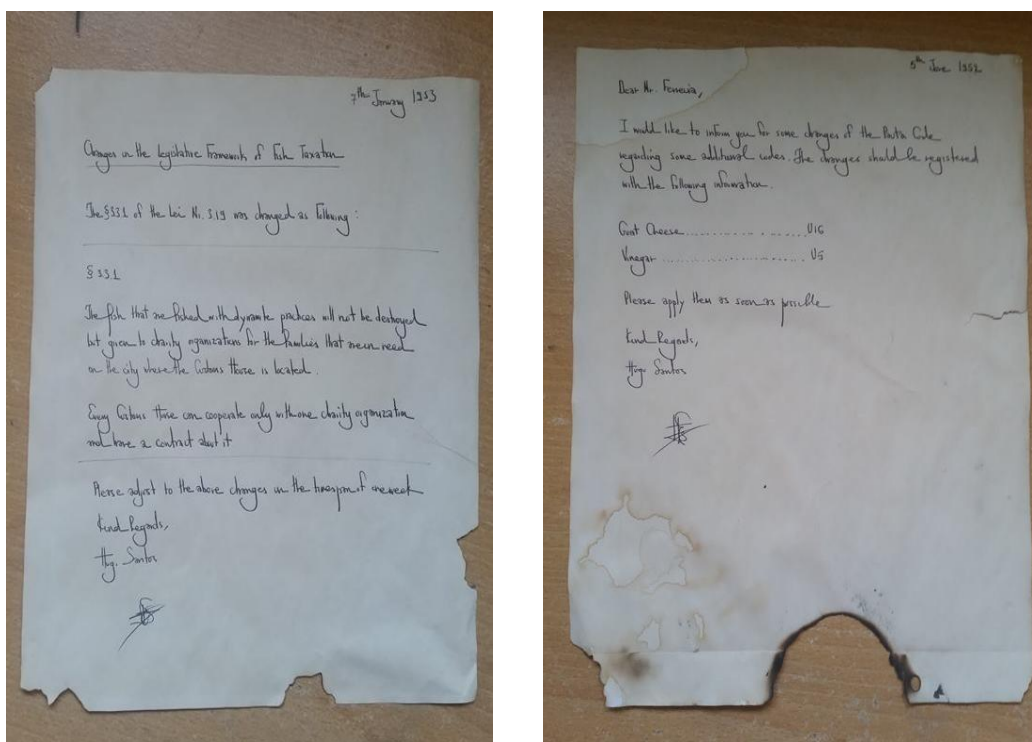 7th January 1953
Changes in the Legislative Framework of Fish Taxation
The §331 of the Lei Nr. 319 was changed as following :
§ 331
The fish that are fished with dynamite practices will not be destroyed
but given to charity organizations for the families that are in need
in the city where the Customs House is located.
Every Customs House can cooperate only with one charity organization
and have a contract about it
Please adjust to the above changes in the timespan of one week
Kind Regards,
Hugo Santos
5th June 1952
Dear Mr. Ferreira,
I would like to inform you for some changes of the Pauta Code
regarding some additional codes. The changes should be registered
with the following information.
Goat Cheese ..................... U16
Vinegar ..................... U5
Please apply them as soon as possible
Kind Regards,
Hugo Santos